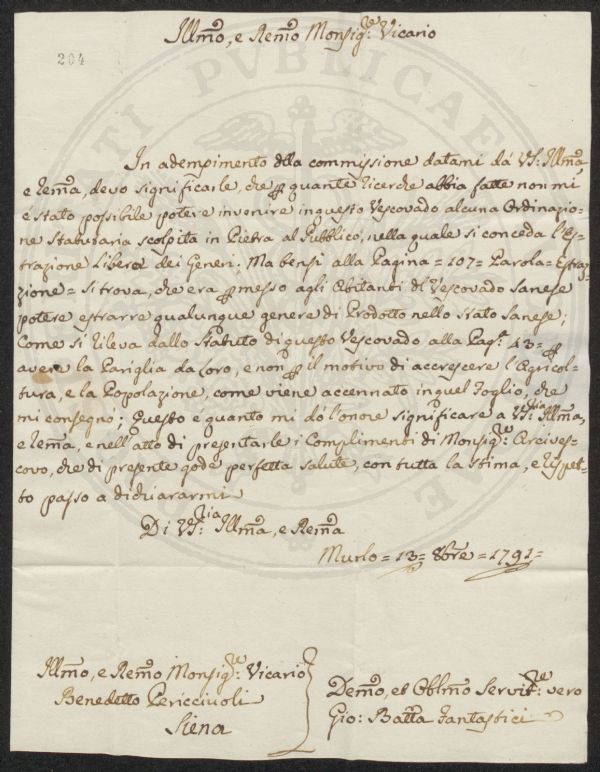 Illmo, e Remo Monsigre: Vicario
204
In adempimento della commissione datami da VS: Illma
e Rema, devo significarle, che per quante ricerche abbia fatte non mi
è stato possibile potere invenire in questo Vescovado alcuna Ordinazio-
ne Statutaria scolpita in Pietra al Pubblico, nella quale si conceda l'Es-
trazione Libera dei Generi: Ma bensì alla Pagina = 107 = Parola = Estraz-
zione = si trova, che era permesso agli Abitanti del Vescovado Sanese
potere estrarre qualunque genere di Prodotto nello Stato Sanese;
Come si rileva dallo Statuto di questo Vescovado alla Pagª 43 = per
avere la Pariglia da loro, e non per il motivo di accrescere l'Agricol-
tura, e la Popolazione, come viene accennato in quel foglio, che
mi consegnò; Questo è quanto mi dò l'onore significare a VSria: Illma,
e Rema, e nell'atto di presentarle i Complimenti di Monsigre: Arcives-
covo, che di presente gode perfetta salute, con tutta la stima, e rispet-
to passo a dichiararmi
Di VSria: Illma, e Rema
Murlo = 13 = 8bre = 1791 =
Illmo, e Remo Monsigre: Vicario
Benedetto Pericciuoli
Siena
Demo, ed Obblmo Servitre: vero
Gio: Batta Fantastici
PUBLICAE